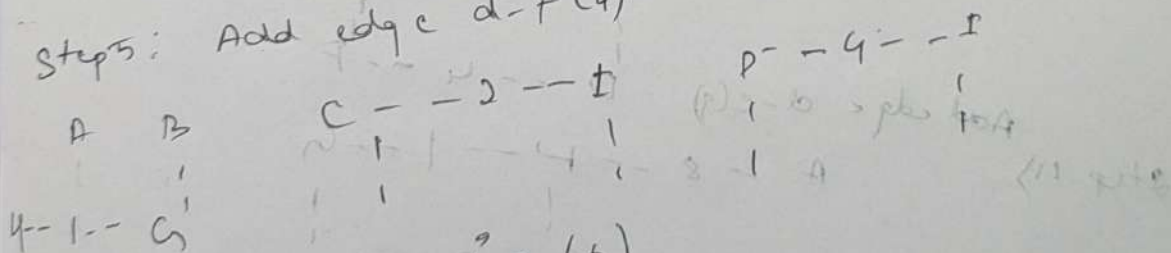 Step5: Add edge d-f (4)
C - - 2 - - I D - - 4 - - I
A B
4 - - 1 - - G